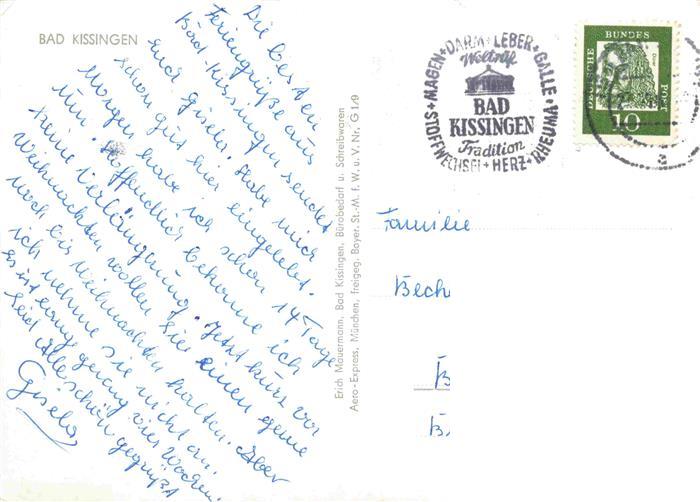 BAD KISSINGEN
Die besten
Feriengrüße aus
Bad-Kissingen sendet
euch Gisela. Habe mich
schon gut hier eingelebt.
Morgen habe ich schon 14 Tage
um. Hoffentlich bekomme ich
keine Verlängerung. Jetzt kurz vor
Weihnachten wollen sie einen gerne
noch bis Weihnachten halten. Aber
ich nehme sie nicht an.
Es ist genug vier Wochen.
Seid alle schön gegrüßt
Gisela
Erich Mauermann, Bad Kissingen, Bürobedarf u. Schreibwaren
Aero-Express, München, freigeg. Bayer. St.-M. f. W. u. V. Nr. G 1/9
STOFFWECHSEL + MAGEN + DARM + LEBER + GALLE + RHEUMA + HERZ +
Weltruf
BAD
KISSINGEN
Tradition
DEUTSCHE
BUNDES
POST
10
a
Familie
Bech
B
B